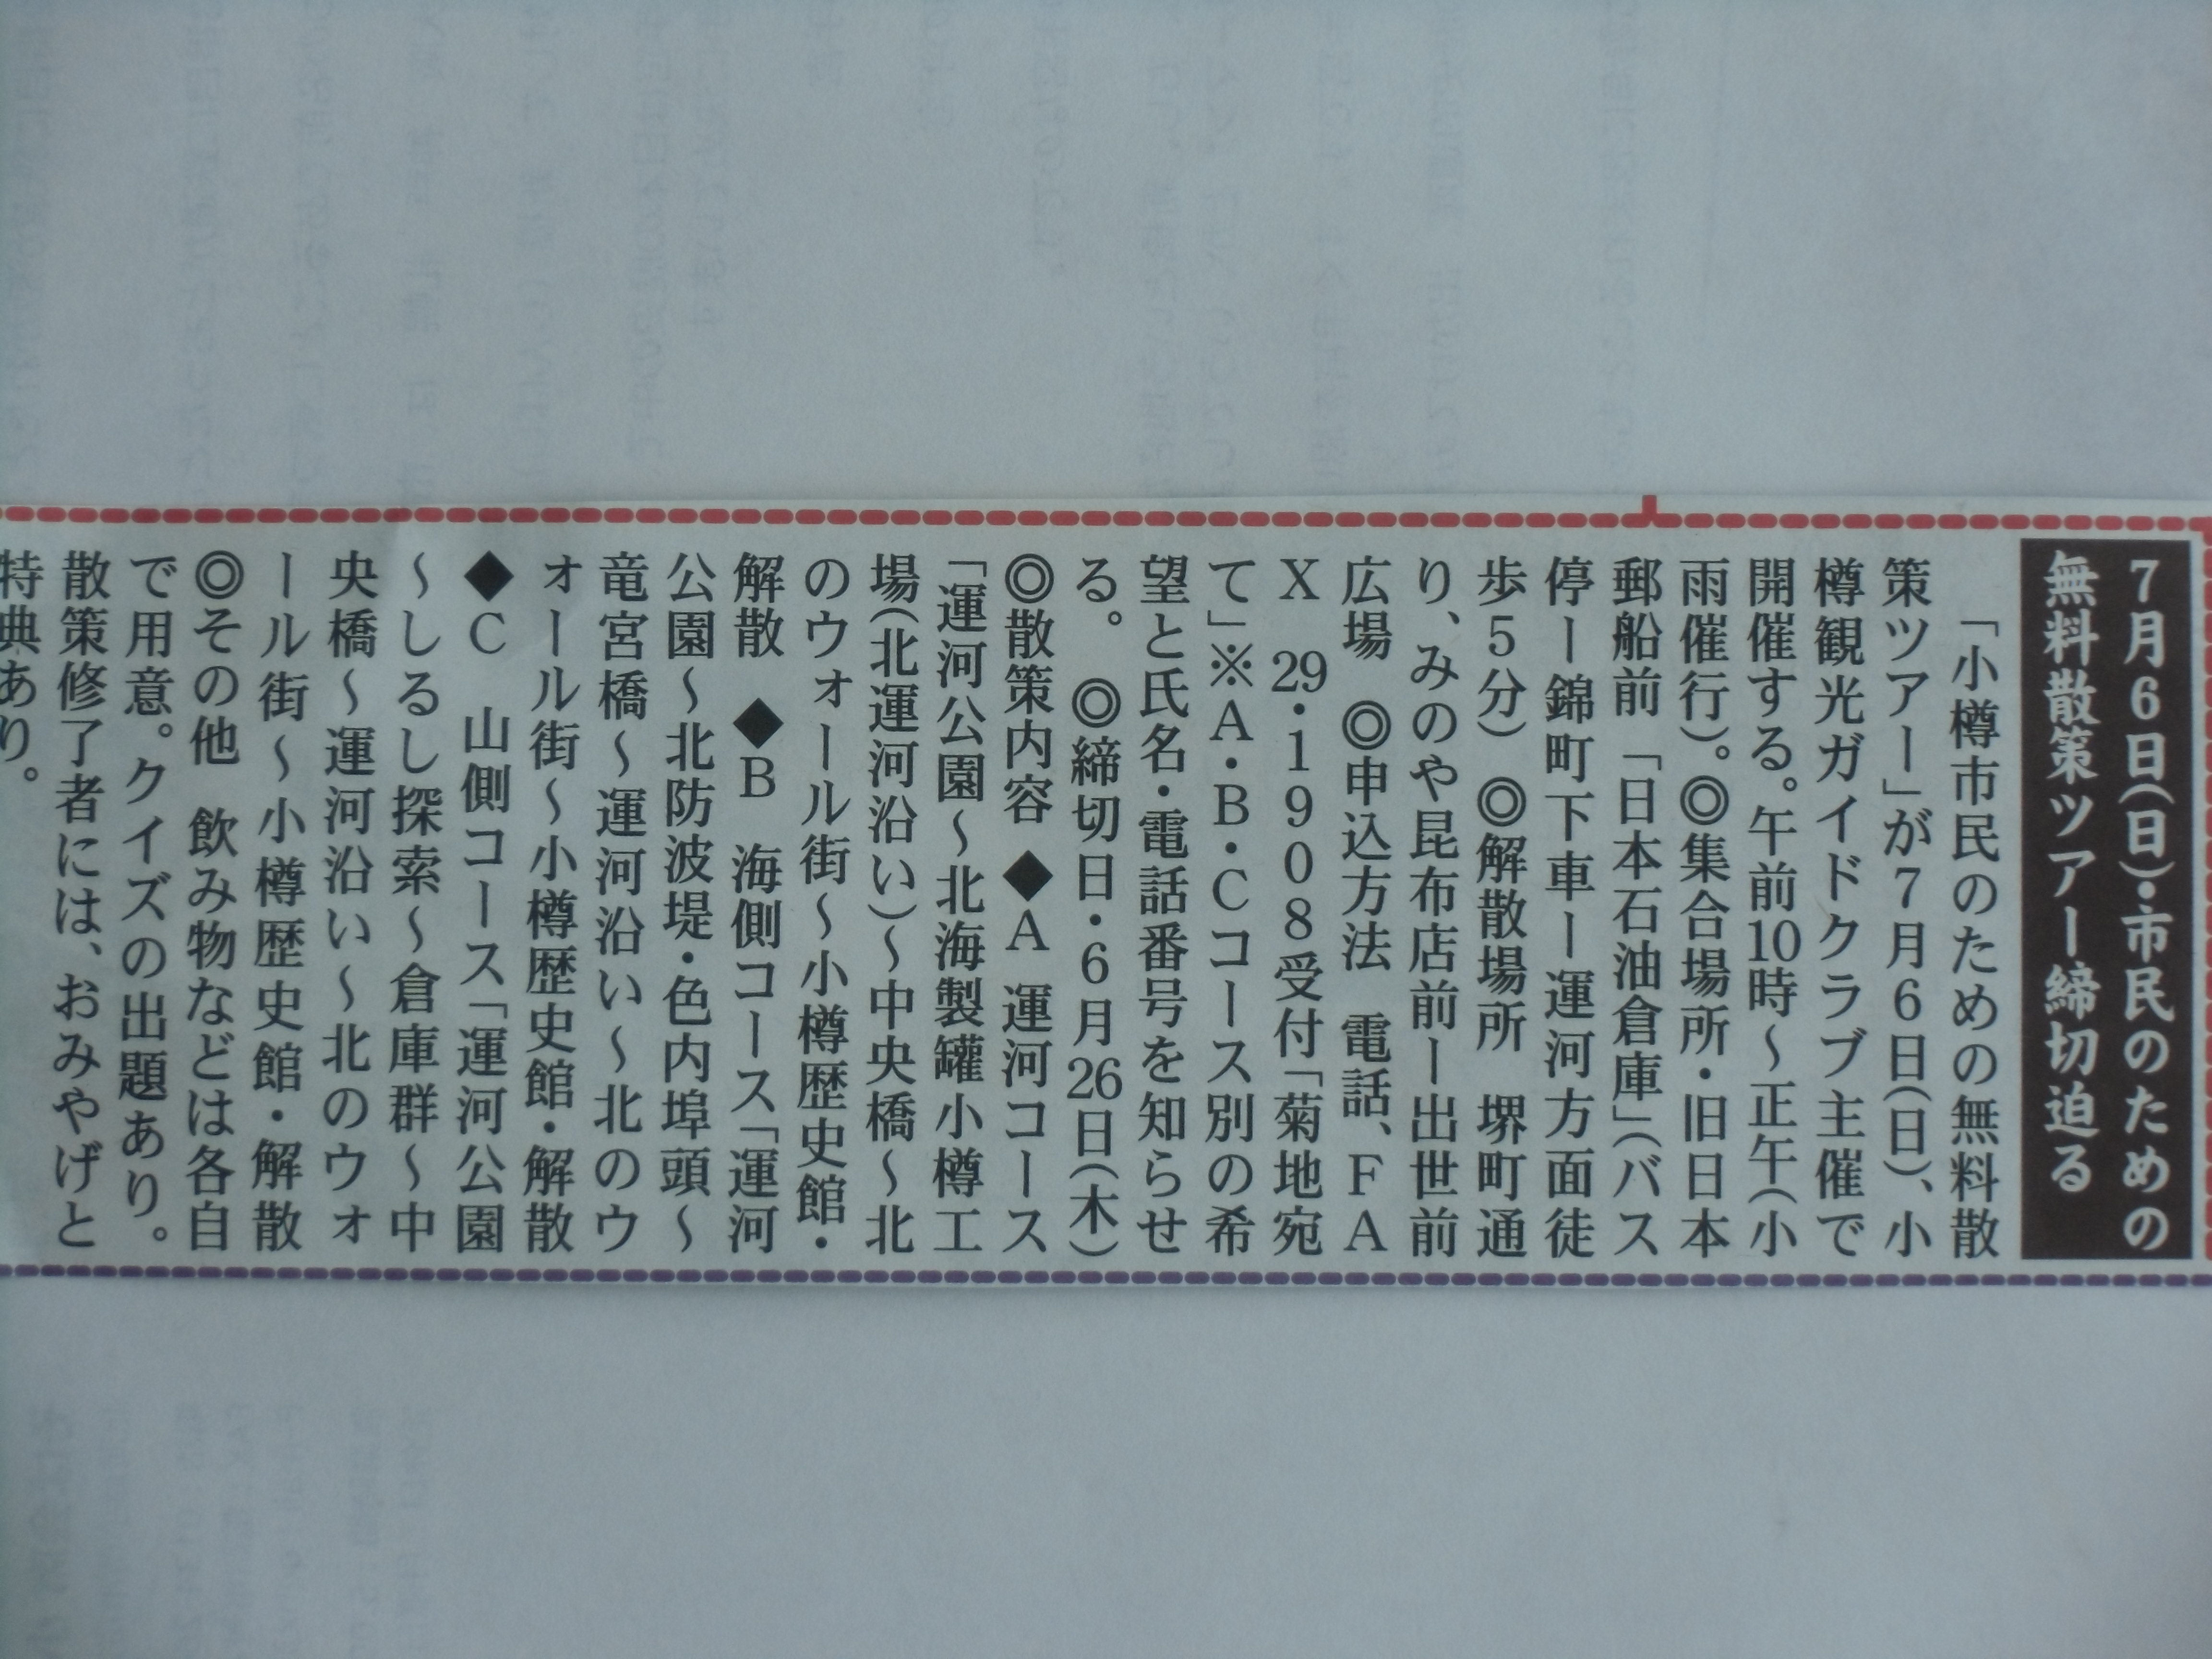 7月6日(日)・市民のための
無料散策ツアー締切迫る
「小樽市民のための無料散
策ツアー」が7月6日(日)、小
樽観光ガイドクラブ主催で
開催する。午前10時〜正午(小
雨催行)。◎集合場所・旧日本
郵船前「日本石油倉庫」(バス
停ー錦町下車ー運河方面徒
歩5分) ◎解散場所 堺町通
り、みのや昆布店前ー出世前
広場 ◎申込方法 電話、FA
X 29・1908受付「菊地宛
て」※A・B・Cコース別の希
望と氏名・電話番号を知らせ
る。 ◎締切日・6月26日(木)
◎散策内容 ◆A 運河コース
「運河公園〜北海製罐小樽工
場(北運河沿い)〜中央橋〜北
のウォール街〜小樽歴史館・
解散 ◆B 海側コース「運河
公園〜北防波堤・色内埠頭〜
竜宮橋〜運河沿い〜北のウ
ォール街〜小樽歴史館・解散
◆C 山側コース「運河公園
〜しるし探索〜倉庫群〜中
央橋〜運河沿い〜北のウォ
ール街〜小樽歴史館・解散
◎その他 飲み物などは各自
で用意。クイズの出題あり。
散策修了者には、おみやげと
特典あり。